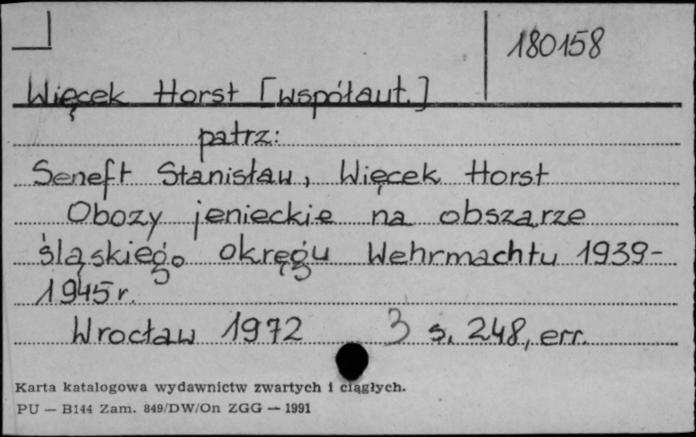 180158
Więcek Horst [współaut.]
patrz:
Seneft Stanisław, Więcek Horst
Obozy jenieckie na obszarze
śląskiego okręgu Wehrmachtu 1939-
1945 r.
Wrocław 1972 3 s. 248, err.
Karta katalogowa wydawnictw zwartych i ciągłych.
PU — B144 Zam. 849/DW/On ZGG — 1991